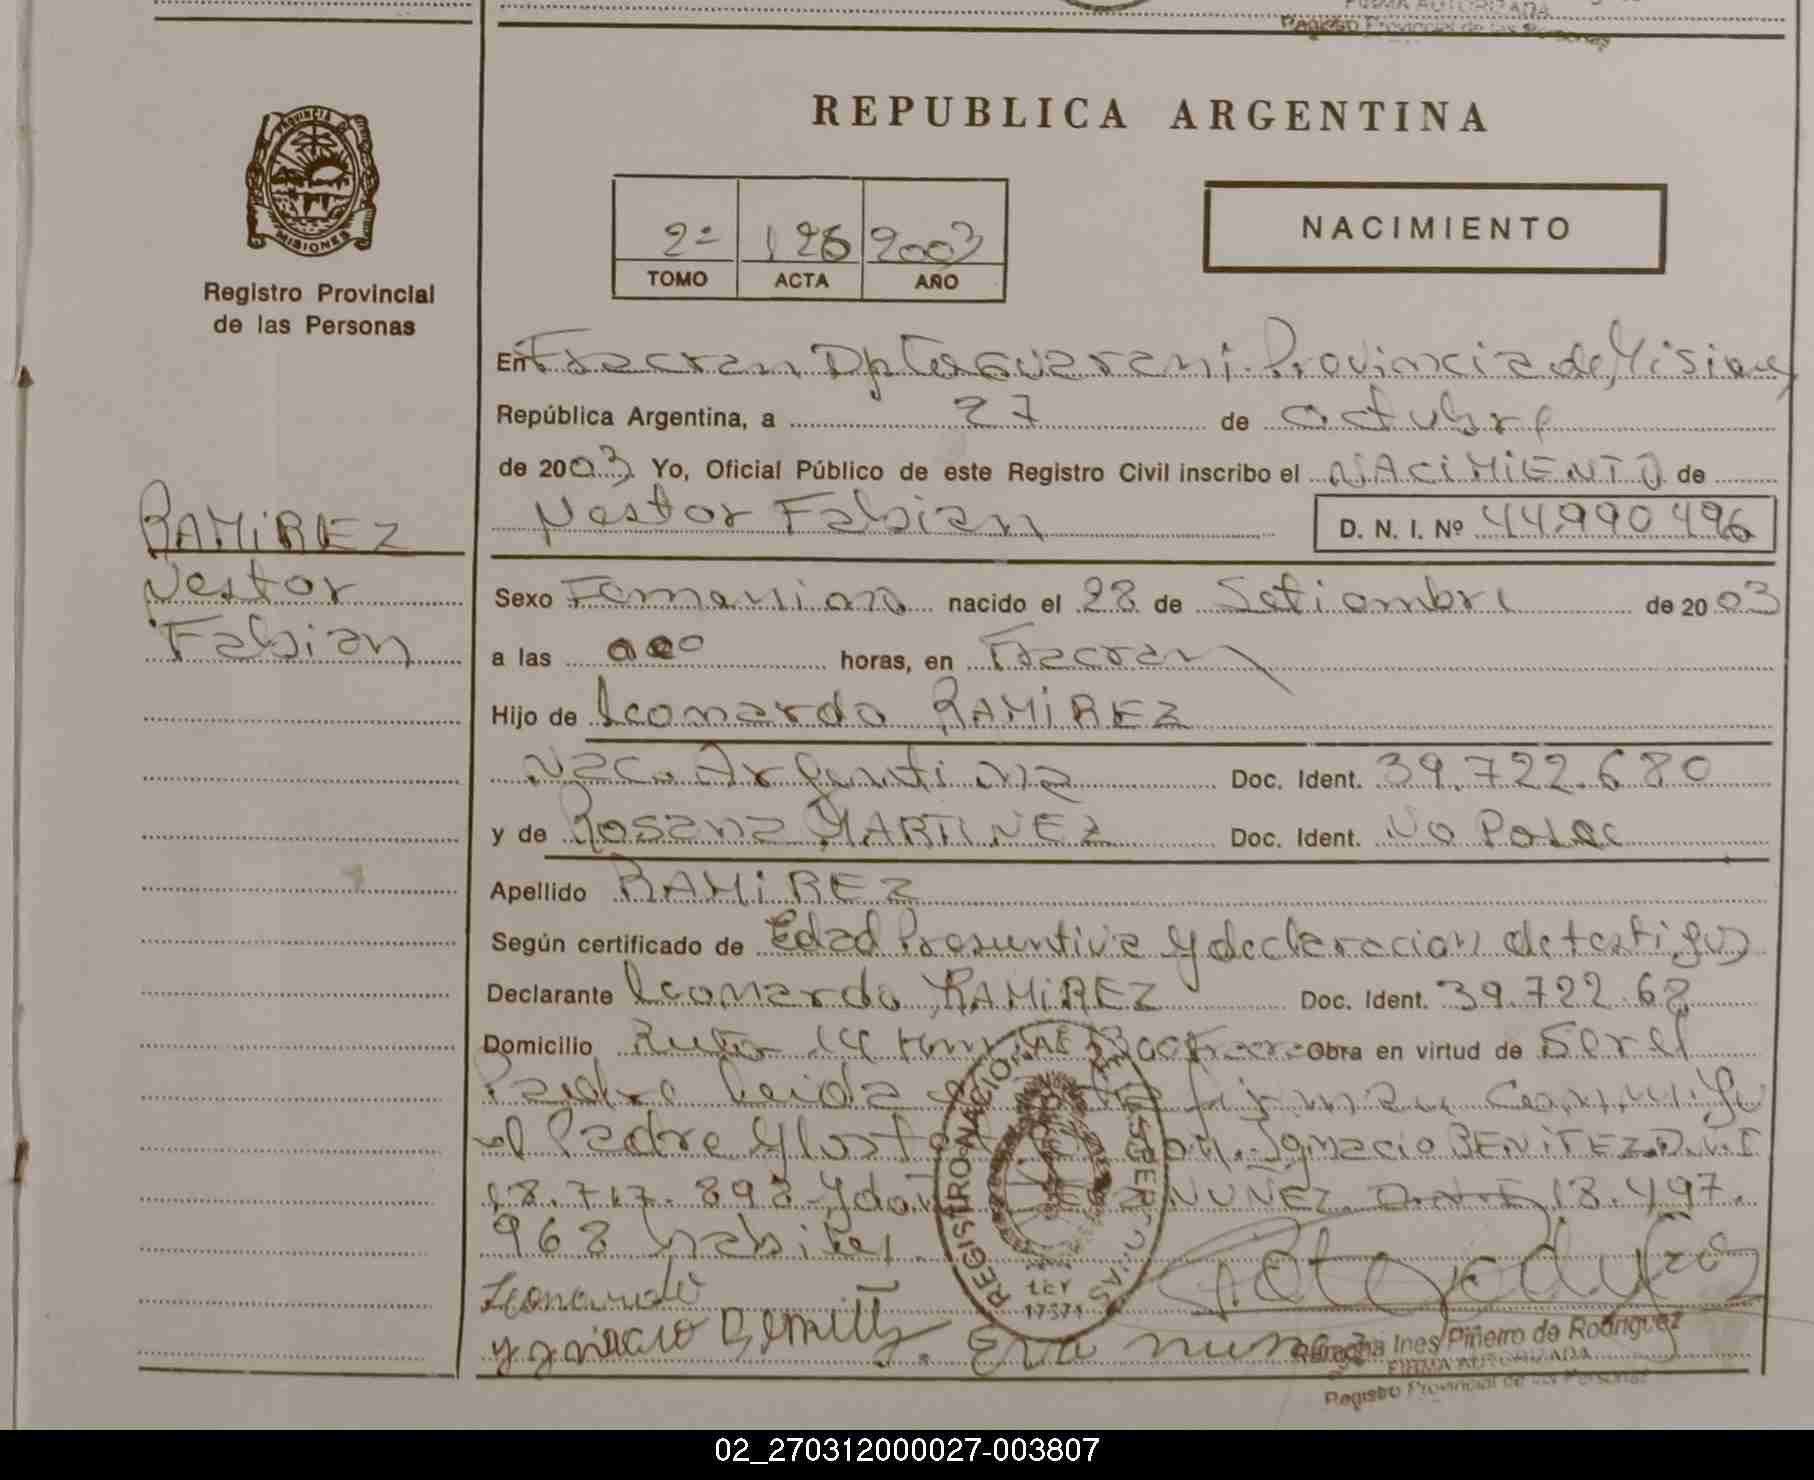 FIRMA AUTORIZADA
Registro Provincial de las Personas
PROVINCIA DE
MISIONES
Registro Provincial
de las Personas
RAMIREZ
Nestor
Fabian
REPUBLICA ARGENTINA
2º 126 2003
TOMO ACTA AÑO
NACIMIENTO
En Fracran Dpto Guarani Provincia de Misiones
República Argentina, a 27 de octubre
de 2003 Yo, Oficial Público de este Registro Civil inscribo el NACIMIENTO de
Nestor Fabian D. N. I. Nº 44.990.496
Sexo Femenino nacido el 28 de Setiembre de 2003
a las horas, en Fracran
Hijo de Leonardo RAMIREZ
Nac. Argentina Doc. Ident. 39.722.680
y de Rosana MARTINEZ Doc. Ident. No Posee
Apellido RAMIREZ
Según certificado de Edad Presuntiva y declaracion de testigos
Declarante Leonardo RAMIREZ Doc. Ident. 39.722.68
Domicilio Ruta 14 Km Obra en virtud de Ser el
Padre Leida firman conmigo
el Padre y los Ignacio BENITEZ D.N.I
18.717.898 y NUÑEZ D.N.I 18.497.
968 habiles.
REGISTRO NACIONAL DE LAS PERSONAS
Ley
17671
Leonardo
Ygnacio Benitez. Eva nuñez
Ramona Ines Piñeiro de Rodriguez
FIRMA AUTORIZADA
Registro Provincial de las Personas
02_270312000027-003807